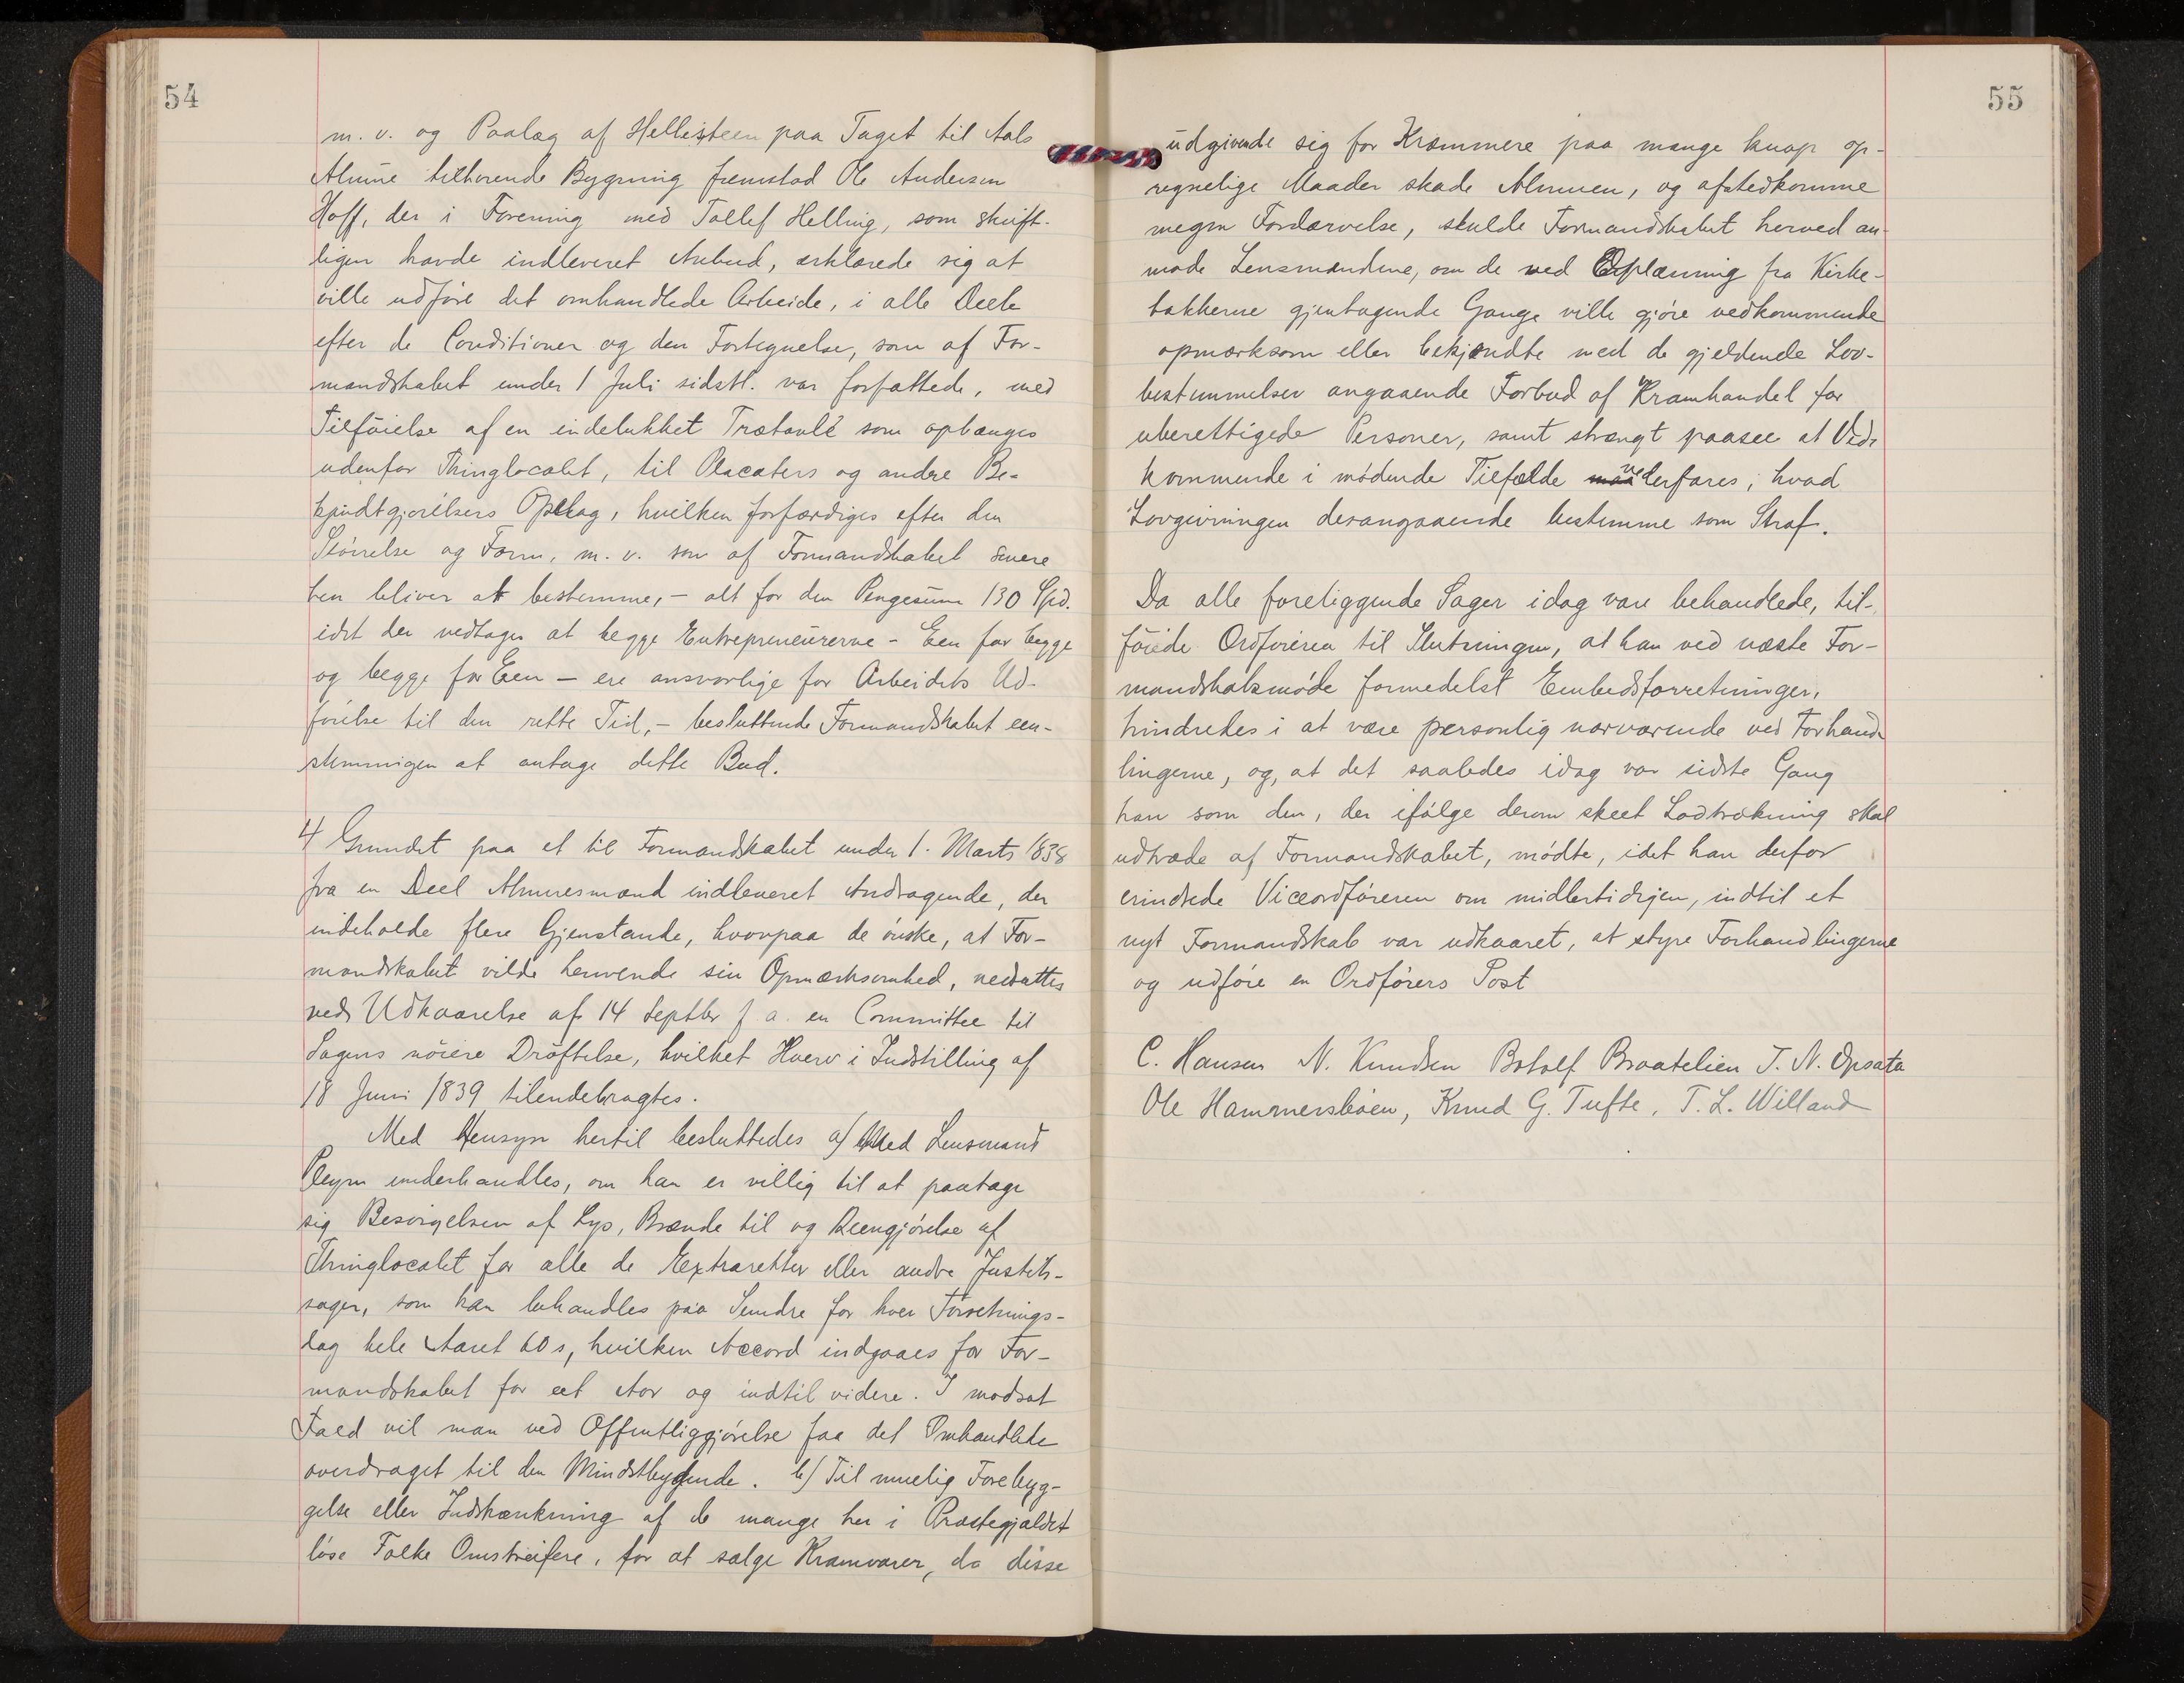 54
m. v. og Paalæg af Hellesteen paa Taget til Aals
Almue tilhørende Bygning fremstod Ole Andersen
Hoff, der i Forening med Tollef Helling, som skrift-
ligen havde indleveret Anbud, erklærede sig at
ville udføre det omhandlede Arbeide, i alle Deele
efter de Conditioner og den Fortegnelse, som af For-
mandskabet under 1 Juli sidstl. var forfattede, med
Tilføielse af en indelukket Trætavle som ophænges
udenfor Thinglocalet, til Placaters og andre Be-
kjendtgjørelsers Opslag, hvilken forfærdiges efter den
Størrelse og Form, m. v. som af Formandskabet senere
hen bliver at bestemme, – alt for den Pengesum 130 Spd.
idet der vedtages at begge Entrepreneurerne – Een for begge
og begge for Een – ere ansvarlige for Arbeidets Ud-
førelse til den rette Tid, – besluttende Formandskabet een-
stemmigen at antage dette Bud.
4 Grundet paa et til Formandskabet under 1. Marts 1838
fra en Deel Almuesmænd indleveret Andragende, der
indeholde flere Gjenstande, hvorpaa de ønske, at For-
mandskabet vilde henvende sin Opmærksomhed, nedsattes
ved Udkaarelse af 14 Septbr f. a. en Committee til
Sagens nøiere Drøftelse, hvilket Hverv i Indstilling af
18 Juni 1839 tilendebragtes.
Med Hensyn hertil besluttedes a) Med Lensmand
Pleym underhandles, om han er villig til at paatage
sig Besørgelsen af Lys, Brænde til og Reengjørelse af
Thinglocalet for alle de Extraretter eller andre Justits-
sager, som kan behandles paa Sundre for hver Forretnings-
dag hele Aaret 60 s, hvilken Accord indgaaes for For-
mandskabet for eet Aar og indtil videre. I modsat
Fald vil man ved Offentliggjørelse faa det Omhandlede
overdraget til den Mindstbydende. b) Til muelig Forebyg-
gelse eller Indskrænkning af de mange her i Præstegjældet
løse Folke Omstreifere, for at sælge Kramvarer, da disse
55
udgivende sig for Kræmmere paa mange knap op-
regnelige Maader skade Almuen, og afstedkomme
megen Fordærvelse, skulde Formandskabet herved an-
mode Lensmændene, om de ved Oplæsning fra Kirke-
bakkerne gjentagende Gange ville gjøre vedkommende
opmærksom eller bekjendte med de gjeldende Lov-
bestemmelser angaaende Forbud af Kramhandel for
uberettigede Personer, samt strængt paasee at Ved-
kommende i mødende Tilfælde vederfares, hvad
Lovgivningen derangaaende bestemme som Straf.
Da alle foreliggende Sager idag vare behandlede, til-
føiede Ordføreren til Slutningen, at han ved næste For-
mandskabsmøde formedelst Embedsforretninger,
hindredes i at være personlig nærværende ved Forhand-
lingerne, og, at det saaledes idag var sidste Gang
han som den, der ifølge derom skeet Lodtrækning skal
udtræde af Formandskabet, mødte, idet han derfor
erindrede Viceordføreren om midlertidigen, indtil et
nyt Formandskab var udkaaret, at styre Forhandlingerne
og udføre en Ordførers Post
C. Hansen N. Knudsen Botolf Braatelien T. N. Opsata
Ole Hammersbøen, Knud G. Tufte, T. L. Villand